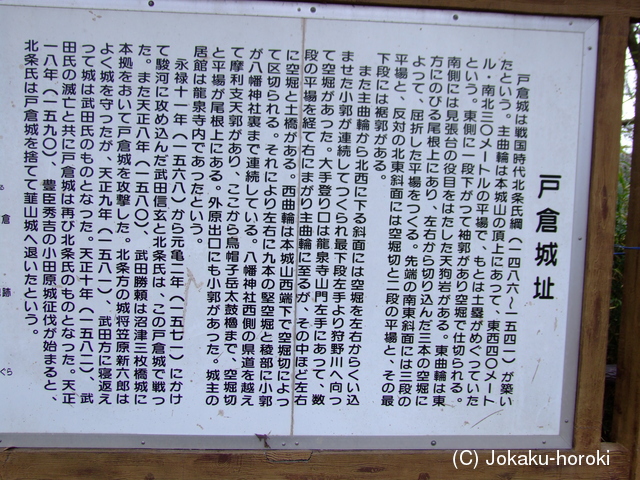 戸倉城址
戸倉城は戦国時代北条氏綱（一四八六～一五四一）が築い
たという。主曲輪は本城山の頂上にあって、東西四〇メート
ル・南北三〇メートルの平場で、もとは土塁がめぐっていた
という。東側に一段下がって袖郭があり空堀で仕切られる。
南側には見張台の役目をはたした天狗岩がある。東曲輪は東
方にのびる尾根上にあり、左右から切り込んだ三本の空堀に
よって、屈折した平場をつくる。先端の南東斜面には三段の
平場と、反対の北東斜面には空堀切と二段の平場と、その最
下段には裾郭がある。
また主曲輪から北西に下る斜面には空堀を左右からくい込
ませた小郭が連続してつくられ最下段左手より狩野川へ向っ
て空堀があった。大手登り口は龍泉寺山門左手にあって、数
段の平場を経て右にまがり主曲輪に至るが、その中ほど左右
に空堀と土橋がある。西曲輪は本城山西端下で空堀切によっ
て区切られる。それにより左右に九本の竪空堀と稜部に小郭
が八幡神社裏まで連続している。八幡神社西側の県道を越え
て摩利支天郭があり、ここから烏帽子岳太鼓櫓まで、空堀切
と平場が尾根上にある。外原出口にも小郭があった。城主の
居館は龍泉寺内であったという。
永禄十一年（一五六八）から元亀二年（一五七一）にかけ
て駿河に攻め込んだ武田信玄と北条氏は、この戸倉城で戦っ
た。また天正八年（一五八〇）、武田勝頼は沼津三枚橋城に
本拠をおいて戸倉城を攻撃した。北条方の城将笠原新六郎は
よく城を守ったが、天正九年（一五八一）、武田方に寝返え
って城は武田氏のものとなった。天正十年（一五八二）、武
田氏の滅亡と共に戸倉城は再び北条氏のものとなった。天正
一八年（一五九〇）、豊臣秀吉の小田原城征伐が始まると、
北条氏は戸倉城を捨てて韮山城へ退いたという。
倉
跡
ぐら
(C) Jokaku-horoki